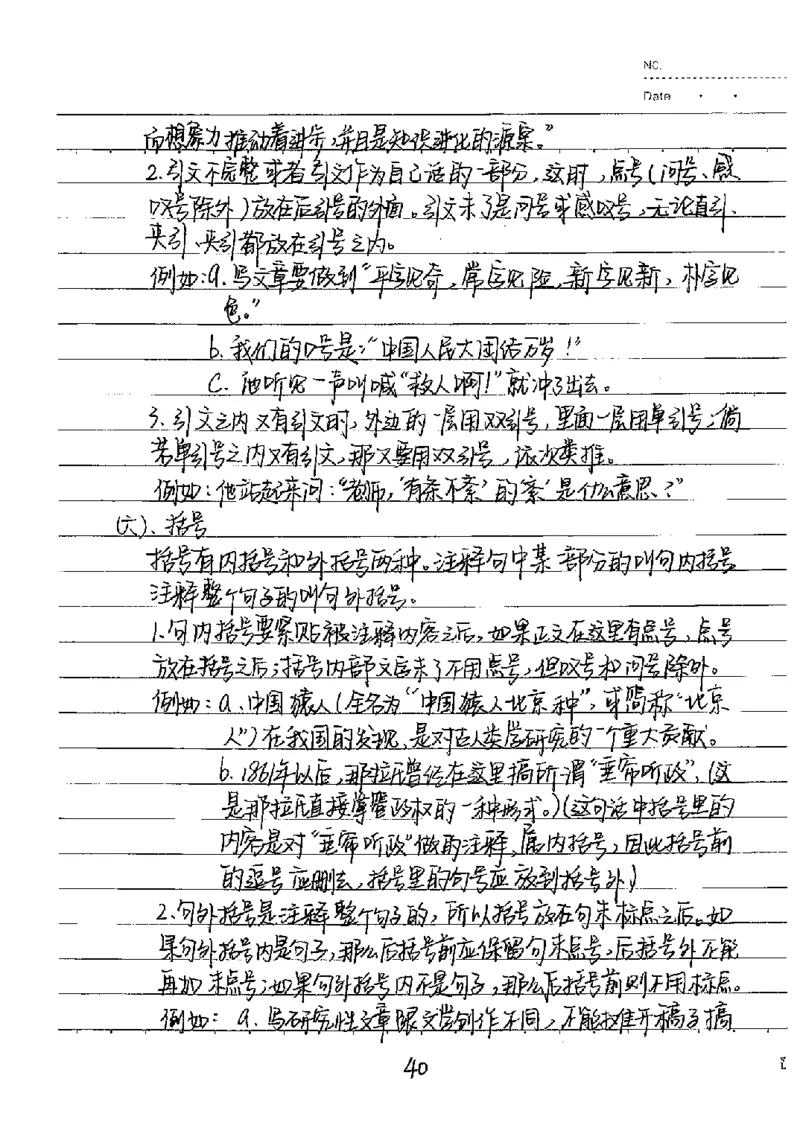 NO.
Date
而想象力推动着进步,并且是知识进化的源泉。”
2.引文不完整或者引文作为自己话的一部分,这时,点号(问号、感
叹号除外)放在后引号的外面。引文末了是问号或感叹号,无论直引、
夹引、夹引都放在引号之内。
例如:a.写文章要做到“平字见奇,常字见险,新字见新,朴字见
色。”
b.我们的口号是:“中国人民大团结万岁!”
c.他听见一声叫喊“救人啊!”就冲了出去。
3.引文之内又有引文时,外边的一层用双引号,里面一层用单引号;倘
若单引号之内又有引文,那又要用双引号,依次类推。
例如:他站起来问:“老师,‘有条不紊’的‘紊’是什么意思?”
(六)、括号
括号有内括号和外括号两种。注释句中某一部分的叫句内括号
注释整个句子的叫句外括号。
1.句内括号要紧贴被注释内容之后,如果正文在这里有点号,点号
放在括号之后;括号内部文后末了不用点号,但叹号和问号除外。
例如:a.中国猿人(全名为“中国猿人北京种”,或简称“北京
人”)在我国的发现,是对古人类学研究的一个重大贡献。
b.1861年以后,那拉氏曾经在这里搞所谓“垂帘听政”,(这
是那拉氏直接掌握政权的一种形式。)(这句话中括号里的
内容是对“垂帘听政”做的注释,属内括号,因此括号前
的逗号应删去,括号里的句号应放到括号外)
2.句外括号是注释整个句子的,所以括号放在句末标点之后。如
果句外括号内是句子,那么后括号前应保留句末点号,后括号外不能
再加末点号;如果句外括号内不是句子,那么后括号前则不用标点。
例如: a.写研究性文章跟文学创作不同,不能摊开稿子搞
40